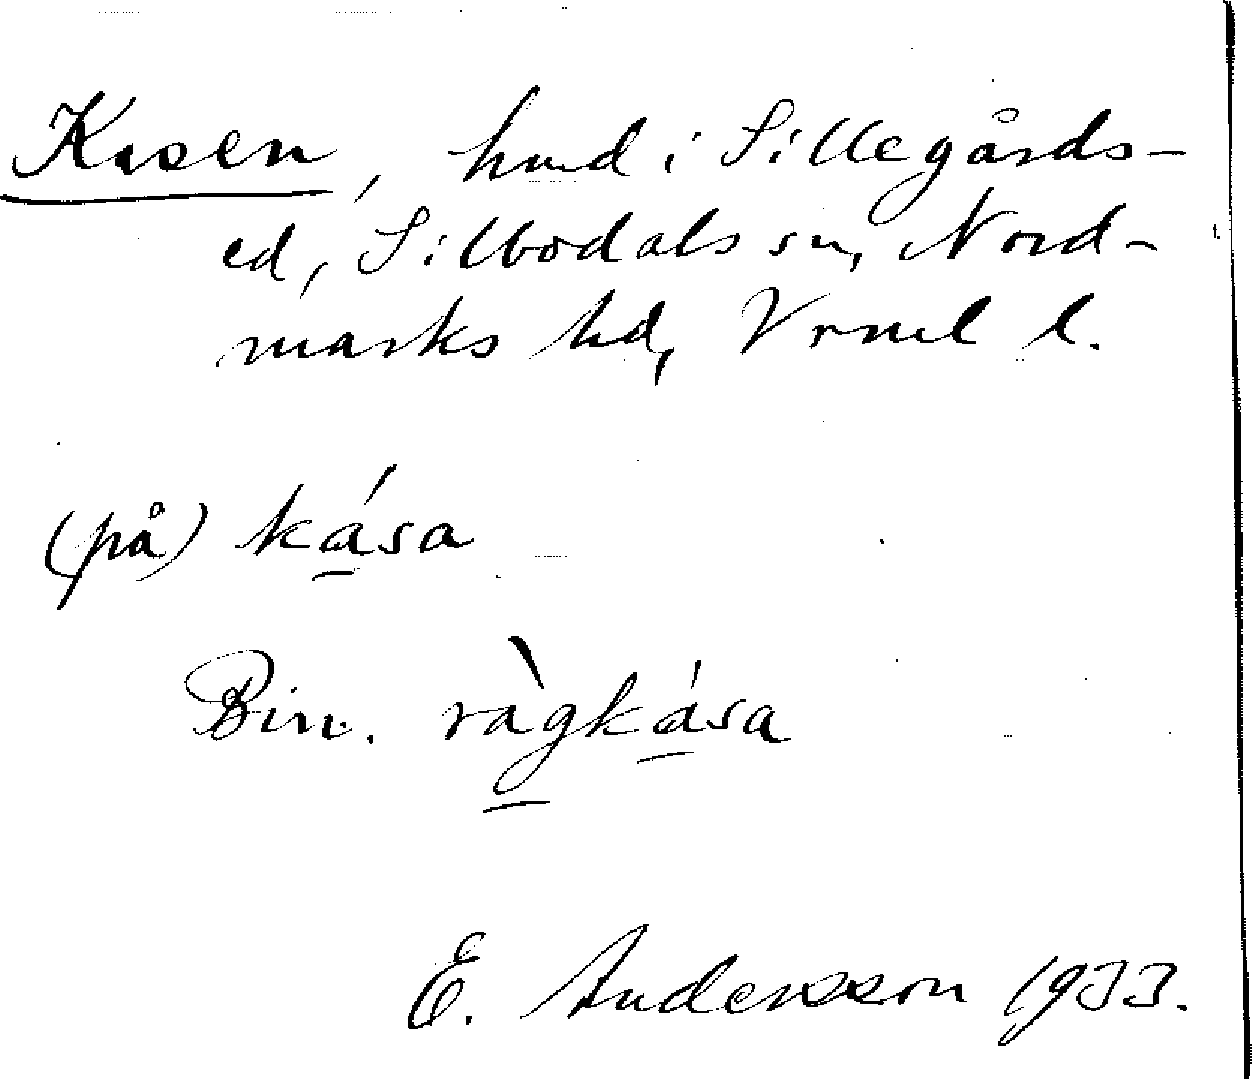 Kasen, hmd i Sillegårds-
ed, Silbodals sn, Nord-
marks hd, Vrml l.
(på) ká̠sa
Bin. ràg̠ká̠sa
E. Andersson 1933.